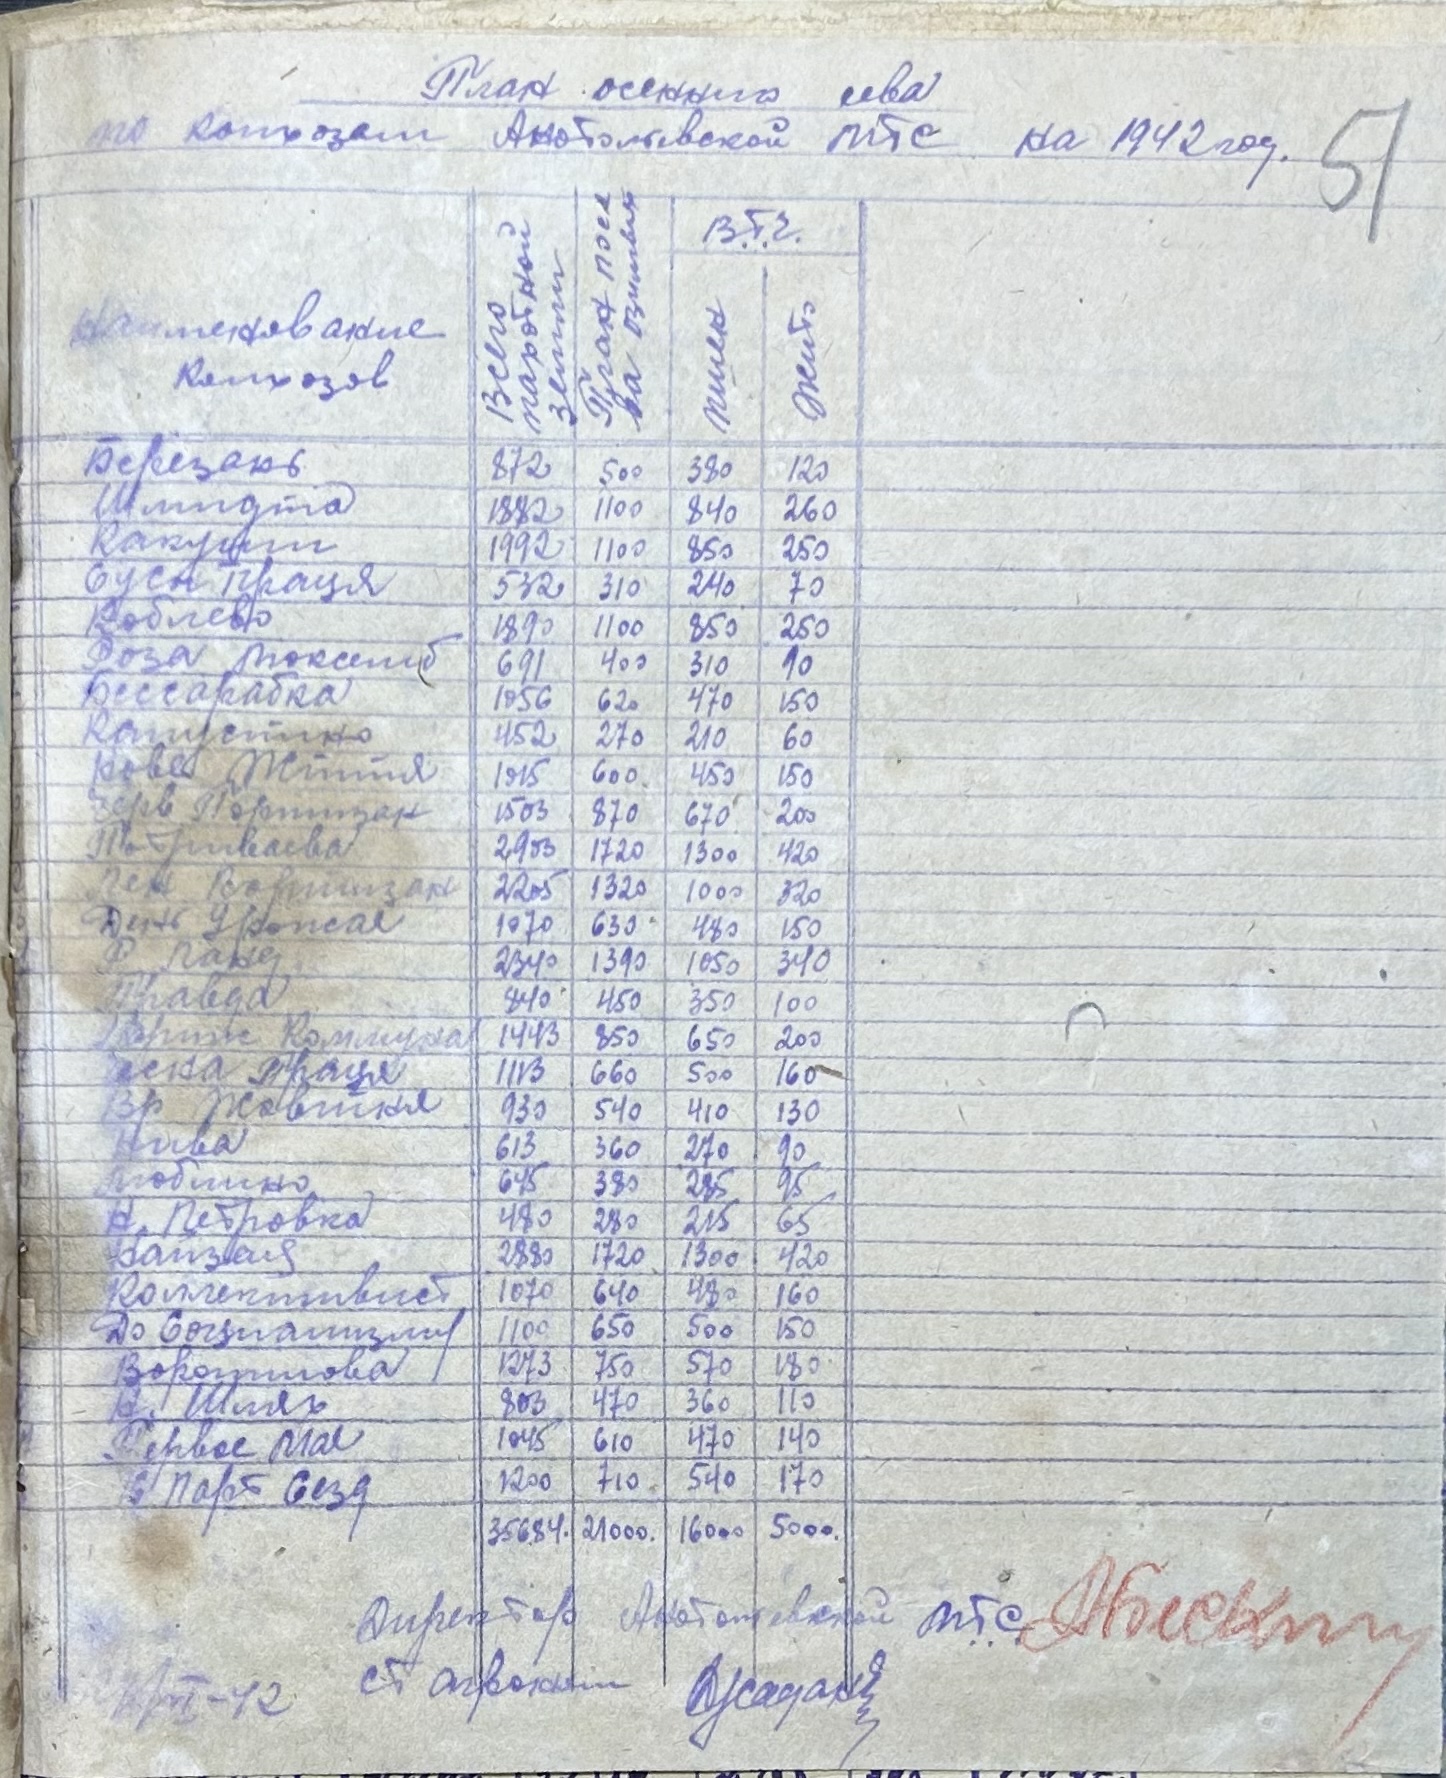 План осеннего сева
по колхозам Анатольевской МТС на 1942 год.
51
Наименование колхозов | Всего пахотной земли | План посева озимых | В.т.ч. пшен | жито
Березань 872 500 380 120
Шмидта 1882 1100 840 260
Какуши 1992 1100 850 250
Сусп Праця 532 310 240 70
Коблево 1890 1100 850 250
Роза Люксемб 691 400 310 90
Бессарабка 1056 620 470 150
Капустино 452 270 210 60
Нове Життя 1015 600 450 150
Черв Партизан 1503 870 670 200
Петриваева 2903 1720 1300 420
Лен Партизан 2205 1320 1000 320
День Урожая 1070 630 480 150
Р Ланд 2340 1390 1050 340
Правда 840 450 350 100
Париж Коммуна 1443 850 650 200
еска Праця 1113 660 500 160
Вр Жовтня 930 540 410 130
Нива 613 360 270 90
Люблино 645 380 285 95
Н. Петровка 480 280 215 65
Найзац 2880 1720 1300 420
Коллективист 1070 640 480 160
До Социализму 1100 650 500 150
Ворошилова 1273 750 570 180
Н. Шлях 803 470 360 110
Первое Мая 1045 610 470 140
18 Парт Сезд 1200 710 540 170
35684. 21000. 16000 5000.
Директор Анатольевской МТС
Ст агроном